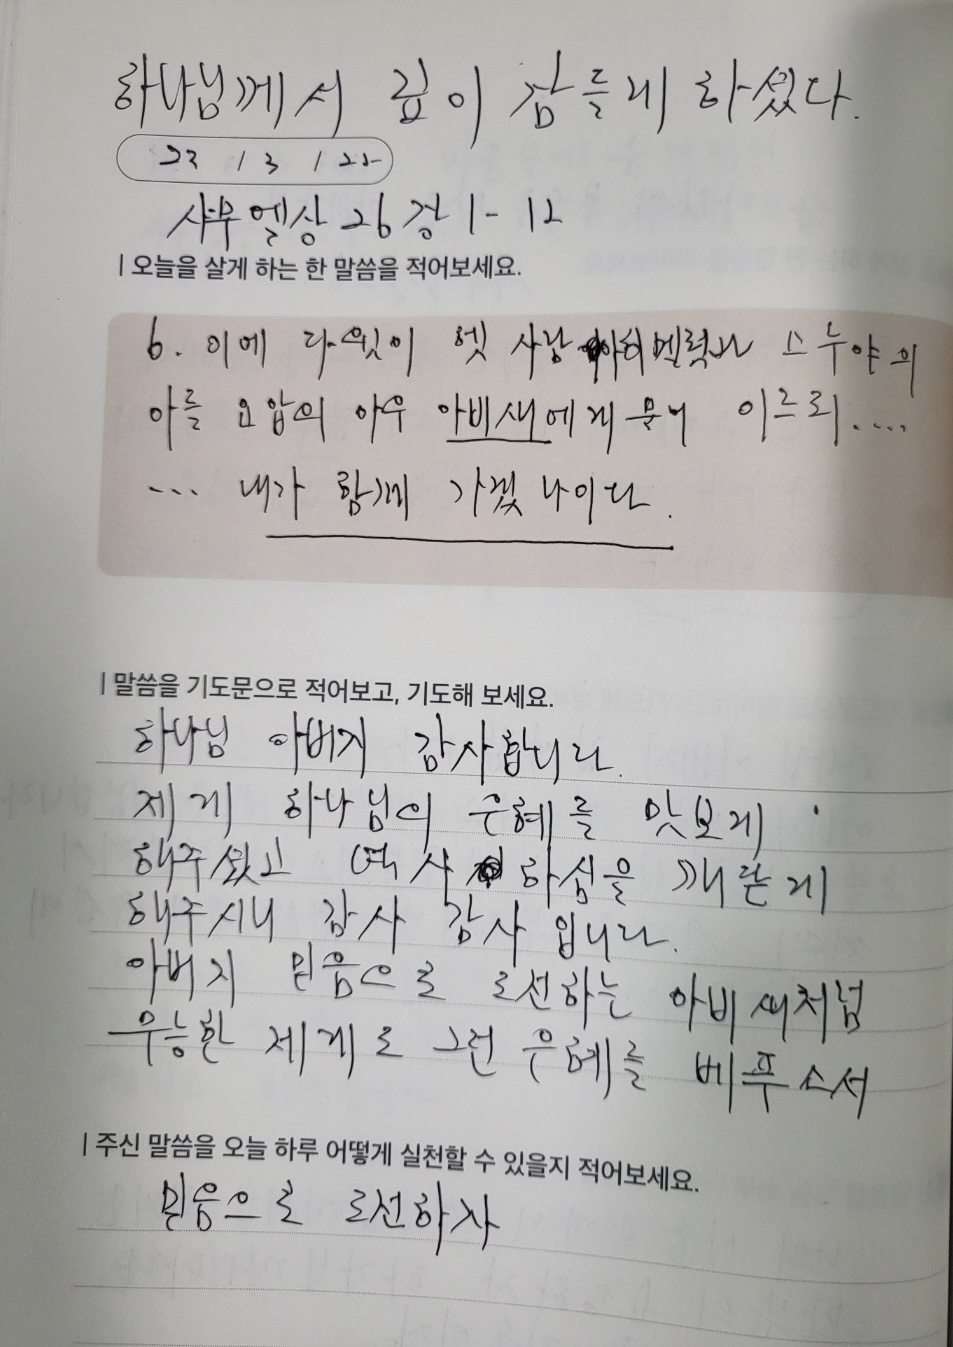 하나님께서 깊이 잠들게 하셨다.
23 / 3 / 25
사무엘상 26장 1-12
| 오늘을 살게 하는 한 말씀을 적어보세요.
6. 이에 다윗이 헷 사람 아히멜렉과 스루야의
아들 요압의 아우 아비새에게 물어 이르되....
... 내가 함께 가겠나이다.
| 말씀을 기도문으로 적어보고, 기도해 보세요.
하나님 아버지 감사합니다.
제게 하나님의 은혜를 맛보게
해주셨고 역사하심을 깨닫게
해주시니 감사 감사 입니다.
아버지 믿음으로 도전하는 아비새처럼
무능한 제게도 그런 은혜를 베푸소서
| 주신 말씀을 오늘 하루 어떻게 실천할 수 있을지 적어보세요.
믿음으로 도전하자